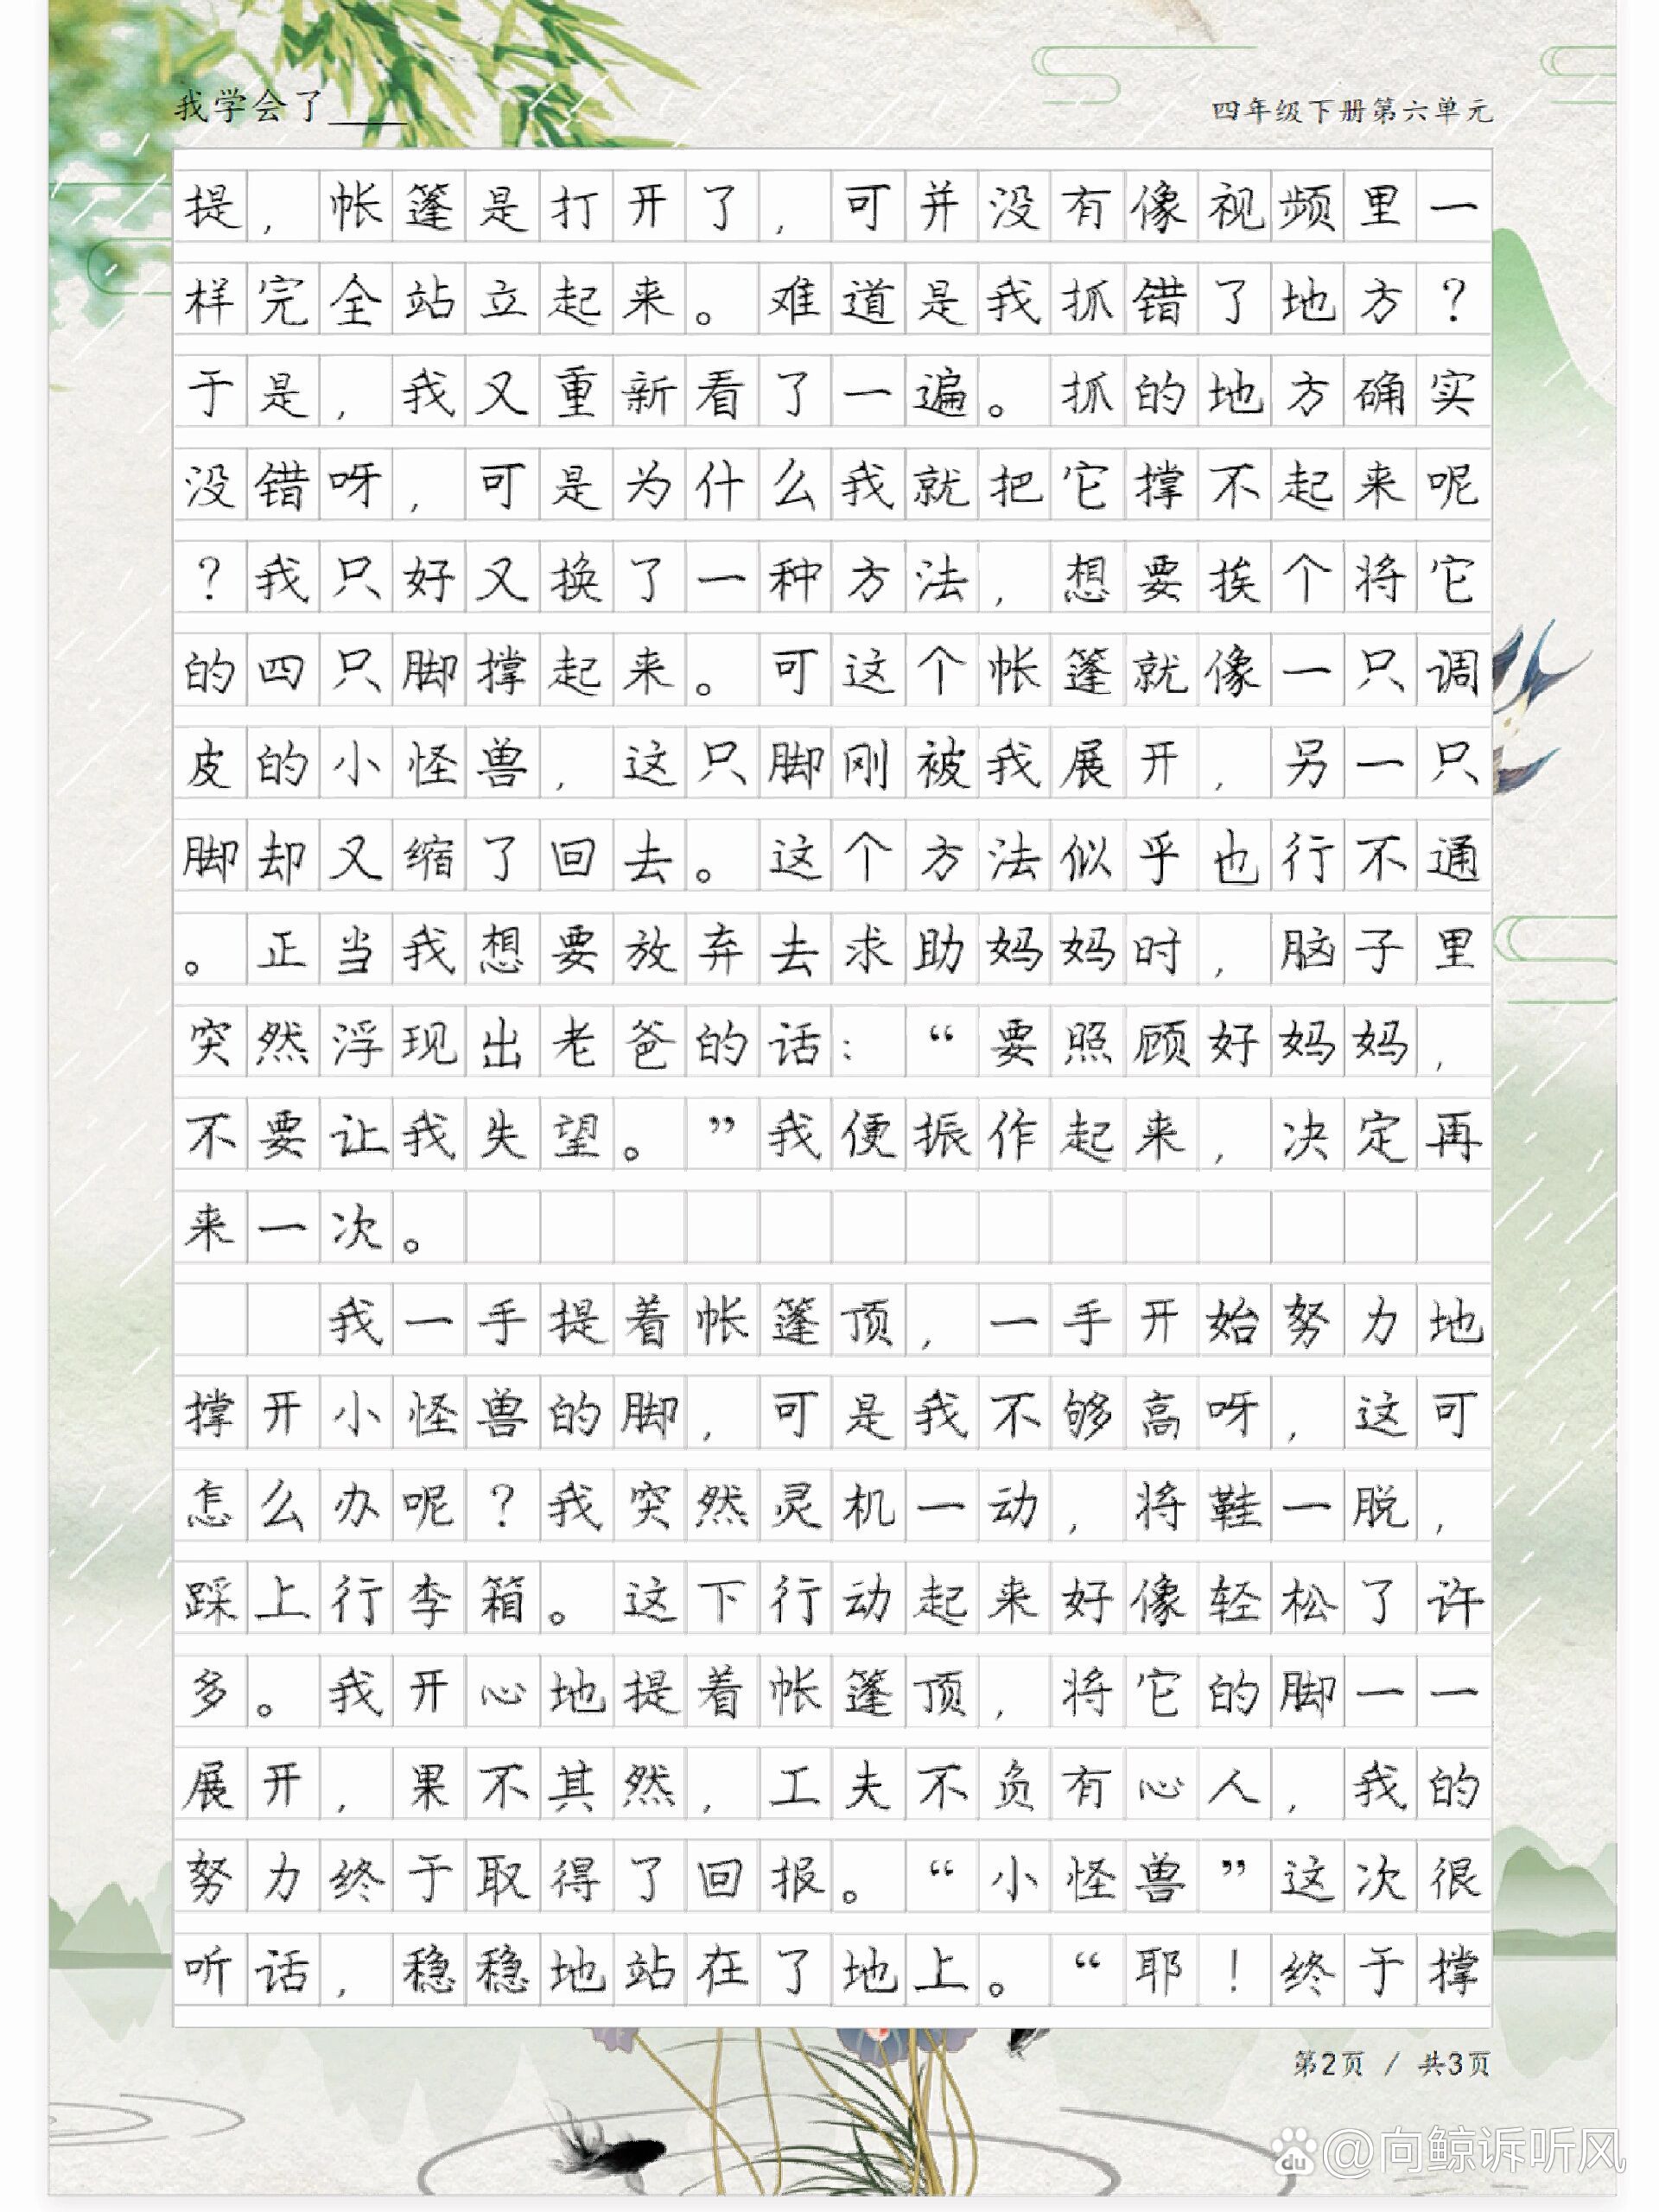 我学会了____
四年级下册第六单元
提，帐篷是打开了，可并没有像视频里一
样完全站立起来。难道是我抓错了地方？
于是，我又重新看了一遍。抓的地方确实
没错呀，可是为什么我就把它撑不起来呢
？我只好又换了一种方法，想要挨个将它
的四只脚撑起来。可这个帐篷就像一只调
皮的小怪兽，这只脚刚被我展开，另一只
脚却又缩了回去。这个方法似乎也行不通
。正当我想要放弃去求助妈妈时，脑子里
突然浮现出老爸的话：“要照顾好妈妈，
不要让我失望。”我便振作起来，决定再
来一次。
我一手提着帐篷顶，一手开始努力地
撑开小怪兽的脚，可是我不够高呀，这可
怎么办呢？我突然灵机一动，将鞋一脱，
踩上行李箱。这下行动起来好像轻松了许
多。我开心地提着帐篷顶，将它的脚一一
展开，果不其然，工夫不负有心人，我的
努力终于取得了回报。“小怪兽”这次很
听话，稳稳地站在了地上。“耶！终于撑
第2页 / 共3页
du @向鲸诉听风